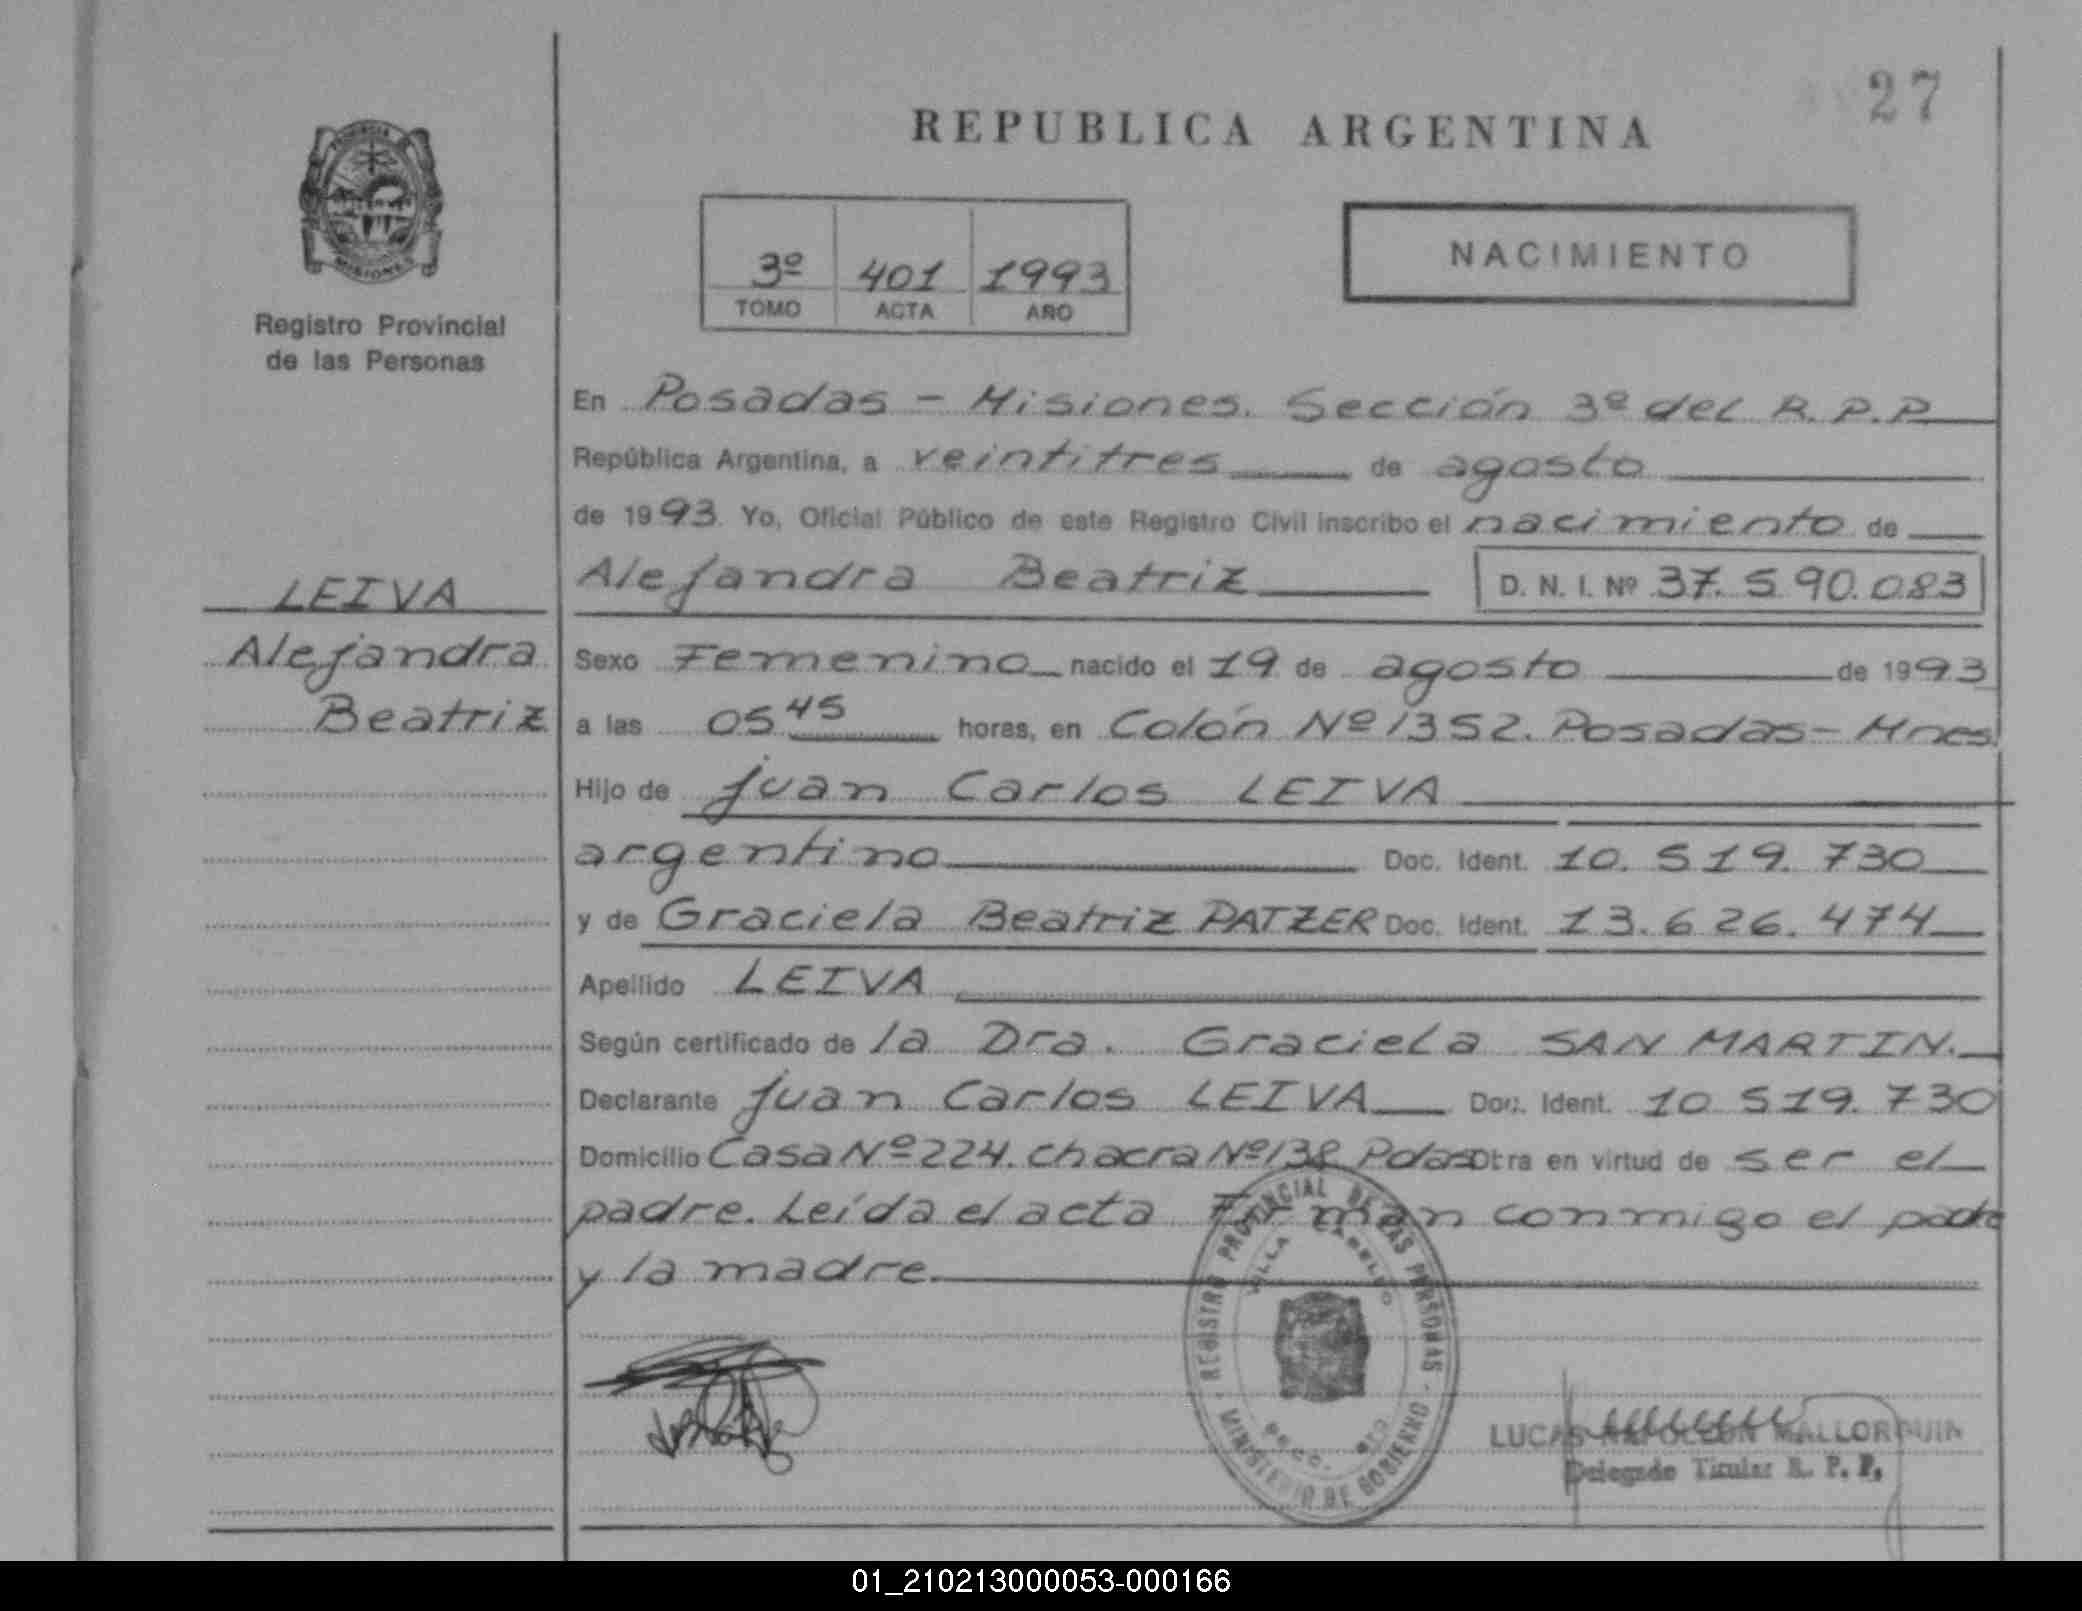 27
REPUBLICA ARGENTINA
PROVINCIA
MISIONES
Registro Provincial
de las Personas
3º 401 1993
TOMO ACTA AÑO
NACIMIENTO
En Posadas - Misiones. Sección 3º del R.P.P
República Argentina, a veintitres de agosto
de 1993 Yo, Oficial Público de este Registro Civil inscribo el nacimiento de
Alejandra Beatriz D. N. I. Nº 37.590.083
LEIVA
Alejandra
Beatriz
Sexo Femenino nacido el 19 de agosto de 1993
a las 05 45 horas, en Colón Nº 1352. Posadas - Mnes
Hijo de Juan Carlos LEIVA
argentino Doc. Ident. 10.519.730
y de Graciela Beatriz PATZER Doc. Ident. 13.626.474
Apellido LEIVA
Según certificado de la Dra. Graciela SAN MARTIN.
Declarante Juan Carlos LEIVA Doc. Ident. 10 519.730
Domicilio Casa Nº 224. chacra Nº 138 Pdas Otra en virtud de ser el
padre. Leída el acta Firman conmigo el padre
y la madre.
REGISTRO PROVINCIAL DE LAS PERSONAS
MINISTERIO DE GOBIERNO
VILLA CABELLO
LUCAS NAPOLEON MALLORQUIN
Delegado Titular R. P. P.
01_210213000053-000166